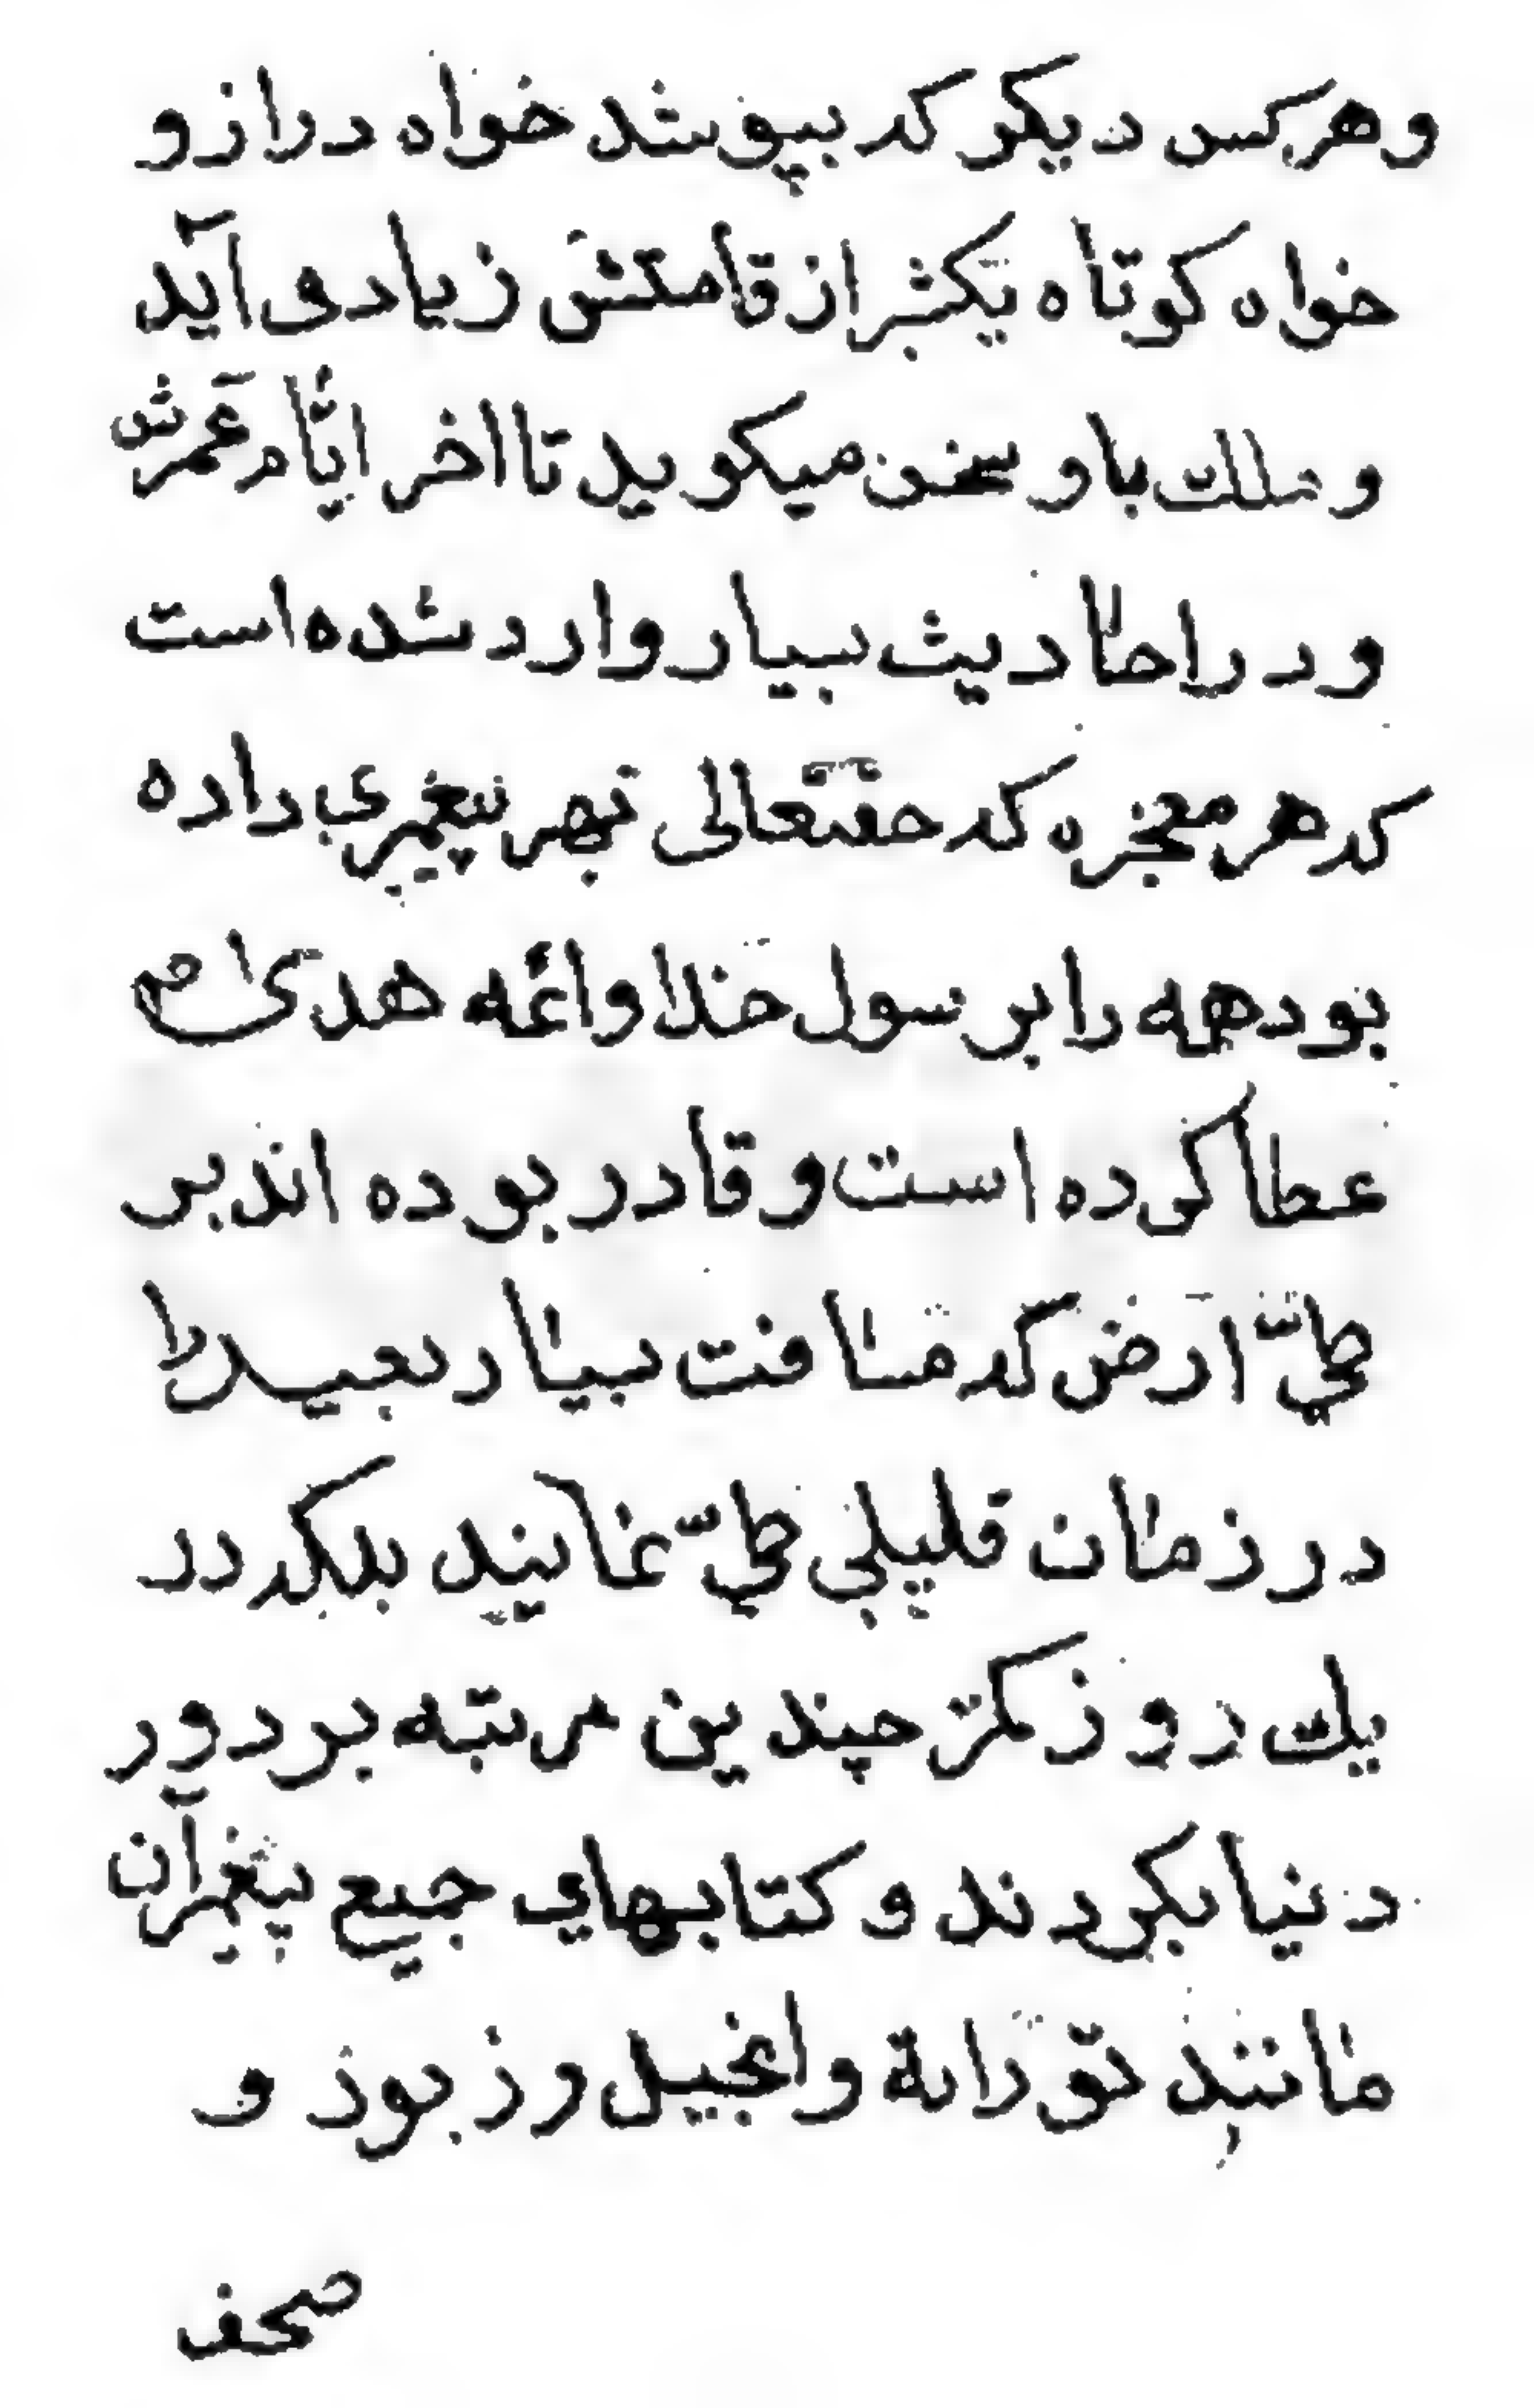 و هر کس دیکر که بپوشد خواه دراز و
خواه کوتاه یکشبر از قامتش زیاد می آید
و ملك باو سخن میکوید تا اخر ایّام عمرش
و در احادیث بسیار وارد شده است
که هر معجزه که حقتعالی بهر پیغمبری داده
بود همه را برسول خدا و ائمّه هدیٰ ع
عطا کرده است و قادر بوده اند بر
طیّ ارض که مسافت بسیار بعید را
در زمان قلیلی طیّ نمایند بلکه در
یك روز کمتر چندین مرتبه بر دور
دنیا بکردند و کتابهای جمیع پیغمبرآن
مانند توراة و انجیل و زبور و
صحف